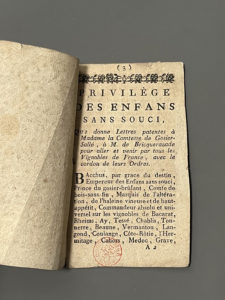 (3)
PRIVILÉGE
DES ENFANS
SANS SOUCI,
Qui donne Lettres patentes à
Madame la Comtesse de Gosier-
Salé, à M. de Briquerazade
pour aller et venir par tous les
Vignobles de France, avec le
cordon de leurs Ordres.
Bacchus, par grace du destin,
Empereur des Enfans sans souci,
Prince du gosier-brûlant, Comte de
bois-sans-fin, Marquis de l'altéra-
tion, de Phaleine vineuse et de haut-
appétit, Commandeur absolu et uni-
versel sur les vignobles de Bacarat,
Rheims, Ay, Tessé, Chablis, Ton-
nerre, Beaune, Vermanton, Lan-
gond, Coulange, Côte-Rôtie, Her-
mitage, Cahors, Medoc, Grave,
A 2